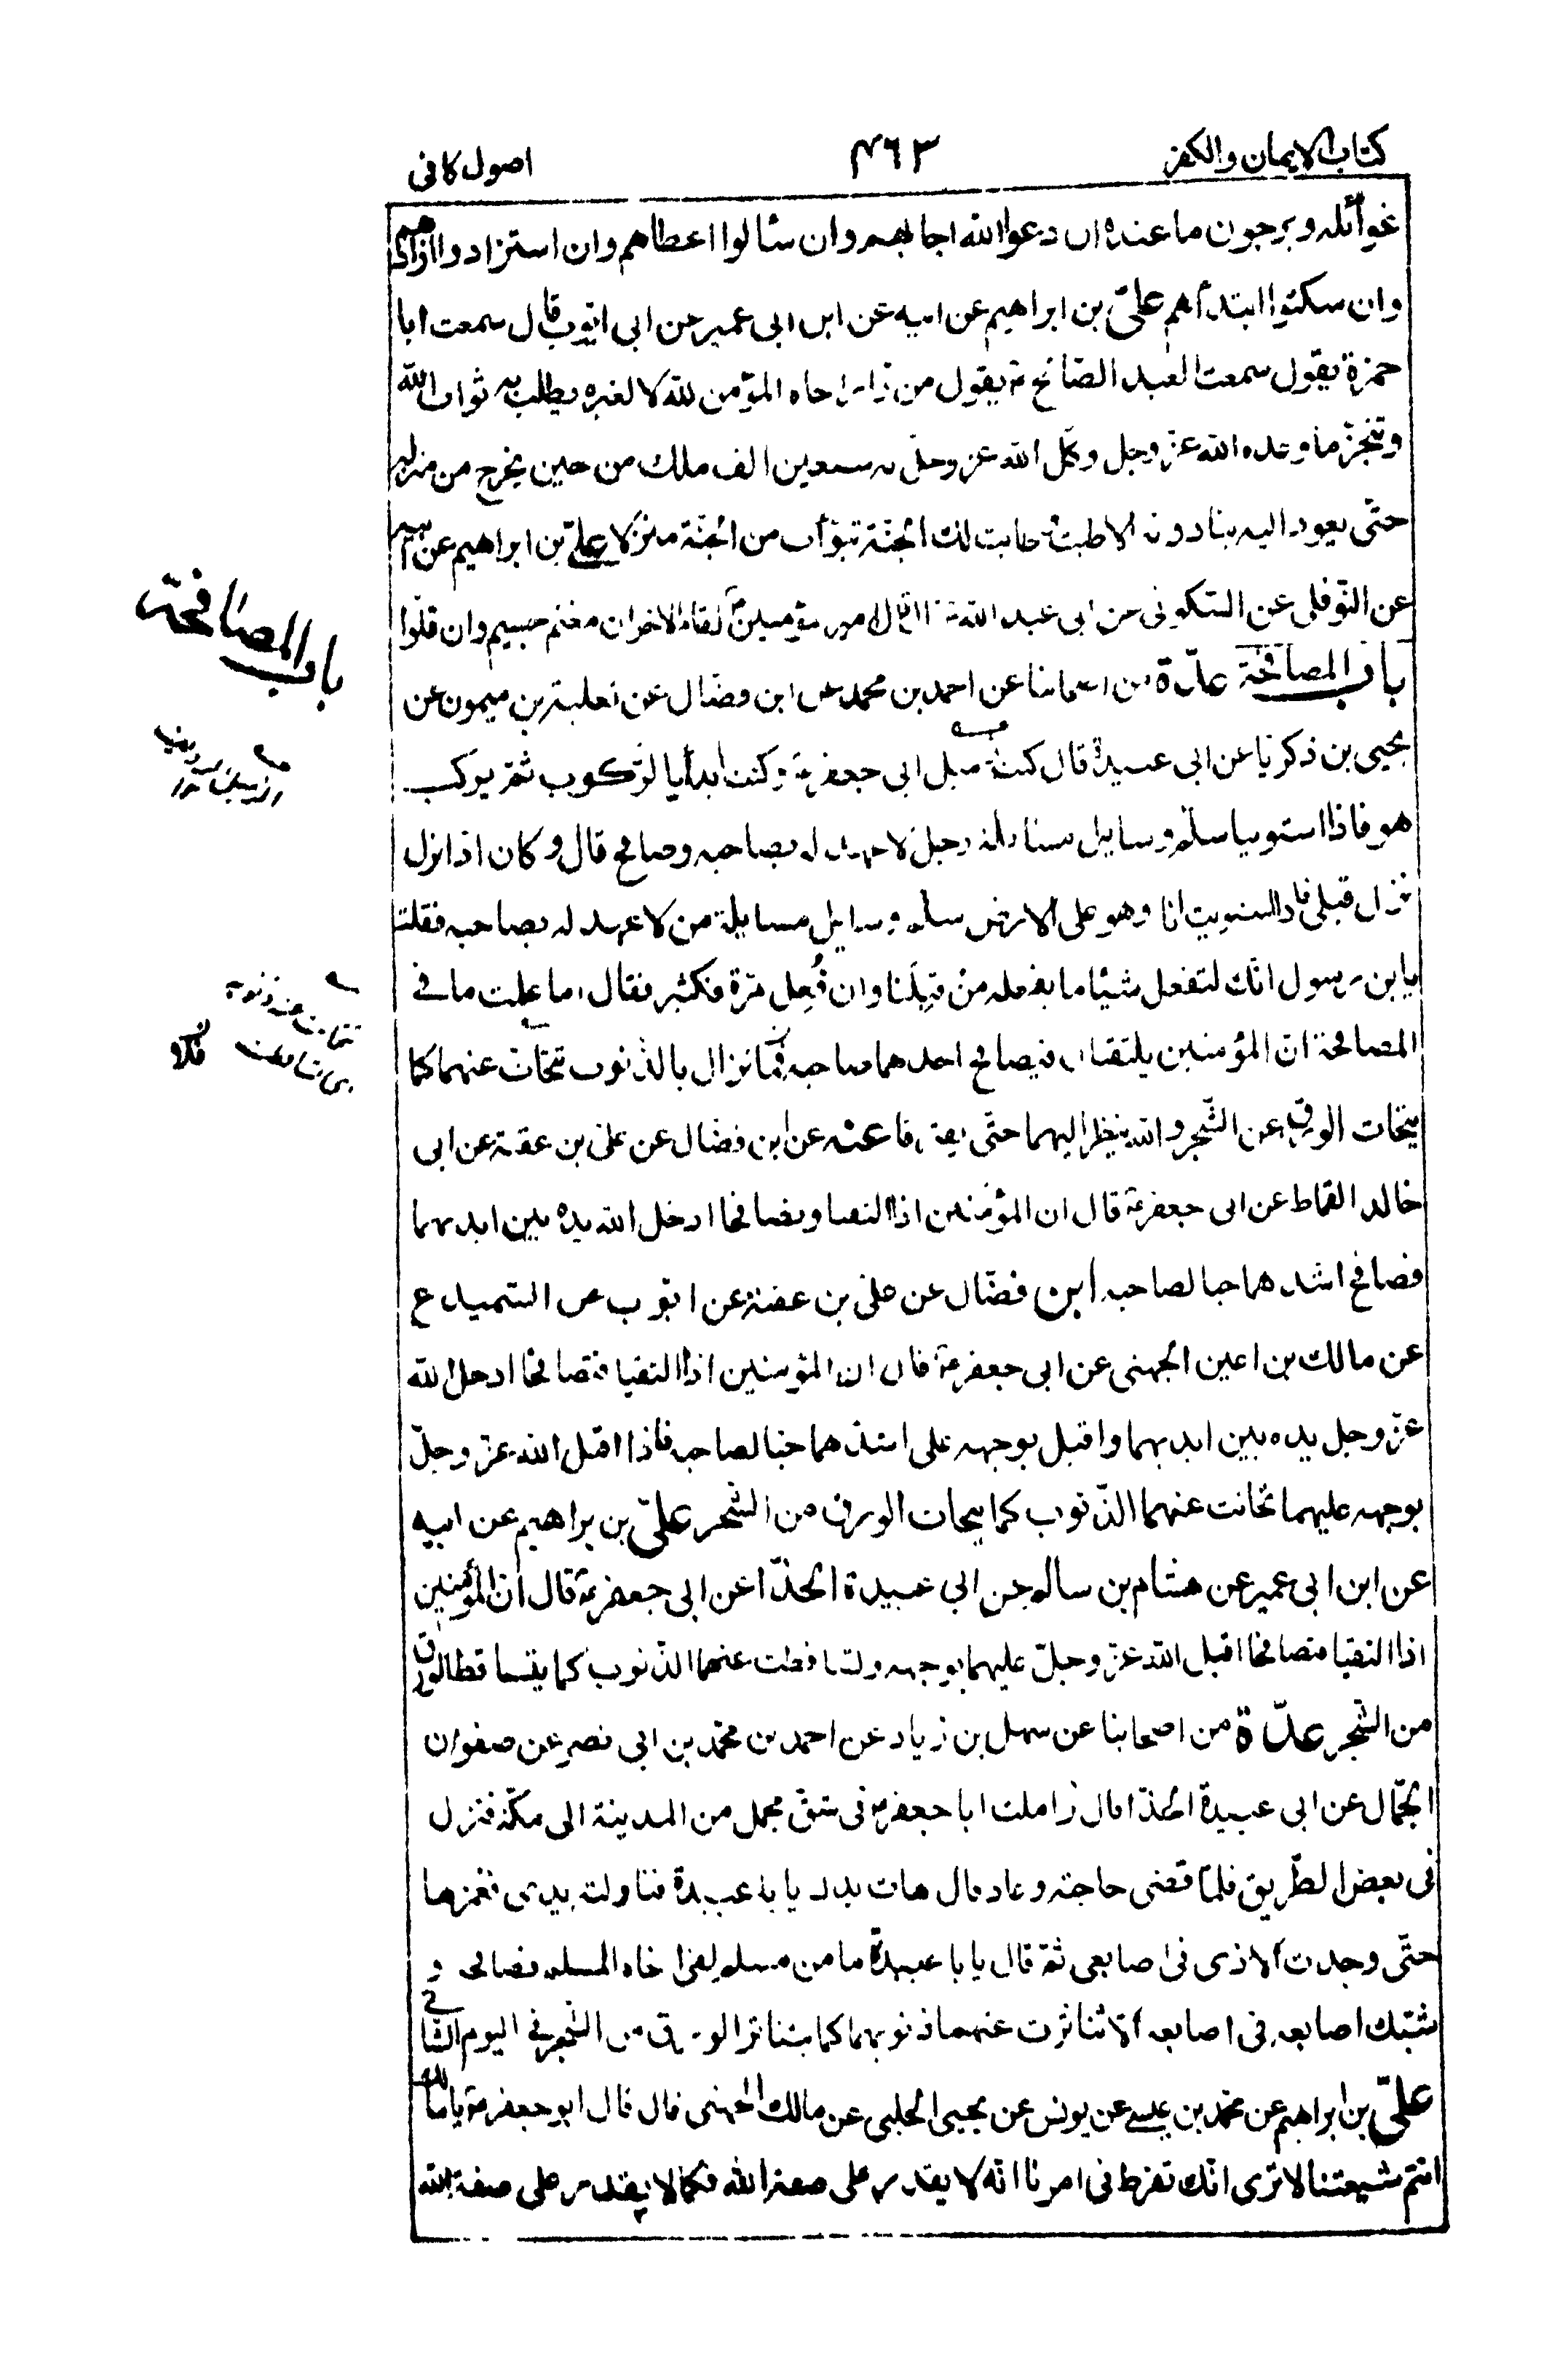 كتاب الايمان والكفر
٤٦٣
اصول كافى
غوائله ويرجون ما عنده ان دعوا الله اجابهم وان سئالوا اعطاهم وان استزادوا زادهم
وان سكتوا ابتدأهم علىّ بن ابراهيم عن ابيه عن ابن ابى عمير عن ابى ايّوب قال سمعت ابا
حمزة يقول سمعت العبد الصّالح ع يقول من زار اخاه المؤمن لله لا لغيره يطلب به ثواب الله
وتنجّز ما وعده الله عزّ وجل وكّل الله عز وجلّ به سبعين الف ملك من حين يخرج من منزله
حتّى يعود اليه ينادونه الا طبت وطابت لك الجنّة تبوّأت من الجنّة منزلا علىّ بن ابراهيم عن ابيه
عن النّوفلى عن السّكونى عن ابى عبد الله ع قال امير المؤمنين ع لقاء الاخوان مغنم جسيم وان قلّوا
باب المصافحة عدّة من اصحابنا عن احمد بن محمد عن ابن فضّال عن ثعلبة بن ميمون عن
يحيى بن زكريّا عن ابى عبيدة قال كنت زميل ابى جعفر ع وكنت ابدأ بالرّكوب ثمّ يركب
هو فاذا استوينا سلّم وسايل مسايلة رجل لا عهد له بصاحبه وصافح قال وكان اذا نزل
نزل قبلى فاذا استويت انا وهو على الارض سلّم وسايل مسايلة من لا عهد له بصاحبه فقلت
يا بن رسول انّك لتفعل شيئا ما يفعله من قِبَلنا وان فُعِل مرّة فكثير فقال اما علمت ما فى
المصافحة انّ المؤمنين يلتقيان فيصافح احدهما صاحبه فما تزال الذّنوب تتحات عنهما كما
يتحات الورق عن الشّجر والله ينظر اليهما حتّى يفترقا عنه عن ابن فضّال عن على بن عقبة عن ابى
خالد القماط عن ابى جعفر ع قال ان المؤمنين اذا التقيا وتصافحا ادخل الله يده بين ايديهما
فصافح اشدهما حبا لصاحبه ابن فضّال عن على بن عقبة عن ايوب عن السّميدع
عن مالك بن اعين الجهنى عن ابى جعفر ع قال ان المؤمنين اذا التقيا فتصافحا ادخل الله
عزّ وجل يده بين ايديهما واقبل بوجهه على اشدّهما حبّا لصاحبه فاذا اقبل الله عزّ وجلّ
بوجهه عليهما تحاتت عنهما الذّنوب كما يتحات الورق من الشّجر علىّ بن براهيم عن ابيه
عن ابن ابى عمير عن هشام بن سالم عن ابى عبيدة الحذّا عن ابى جعفر ع قال ان المؤمنين
اذا التقيا فتصافحا اقبل الله عزّ وجلّ عليهما بوجهه وتساقطت عنهما الذّنوب كما يتساقط الورق
من الشّجر عدّة من اصحابنا عن سهل بن زياد عن احمد بن محمّد بن ابى نصر عن صفوان
الجمّال عن ابى عبيدة الحذّا قال زاملت ابا جعفر ع فى شقّ محمل من المدينة الى مكّة فنزل
فى بعض الطّريق فلمّا قضى حاجته وعاد قال هات يدك يا با عبيدة فناولته يدى فغمزها
حتّى وجدت الاذى فى اصابعى ثمّ قال يا با عبيدة ما من مسلم لقى اخاه المسلم فصافحه و
شبّك اصابعه فى اصابعه الّا تناثرت عنهما ذنوبهما كما يتناثر الورق من الشّجر فى اليوم الشّاتى
علىّ بن ابراهيم عن محمد بن عيسى عن يونس عن يحيى الحلبى عن مالك الجهنى قال قال ابو جعفر ع يا مالك
انتم شيعتنا لا ترى انّك تفرط فى امرنا انّه لا يقدر على صفة الله فكما لا يقدر على صفة الله
باب المصافحة